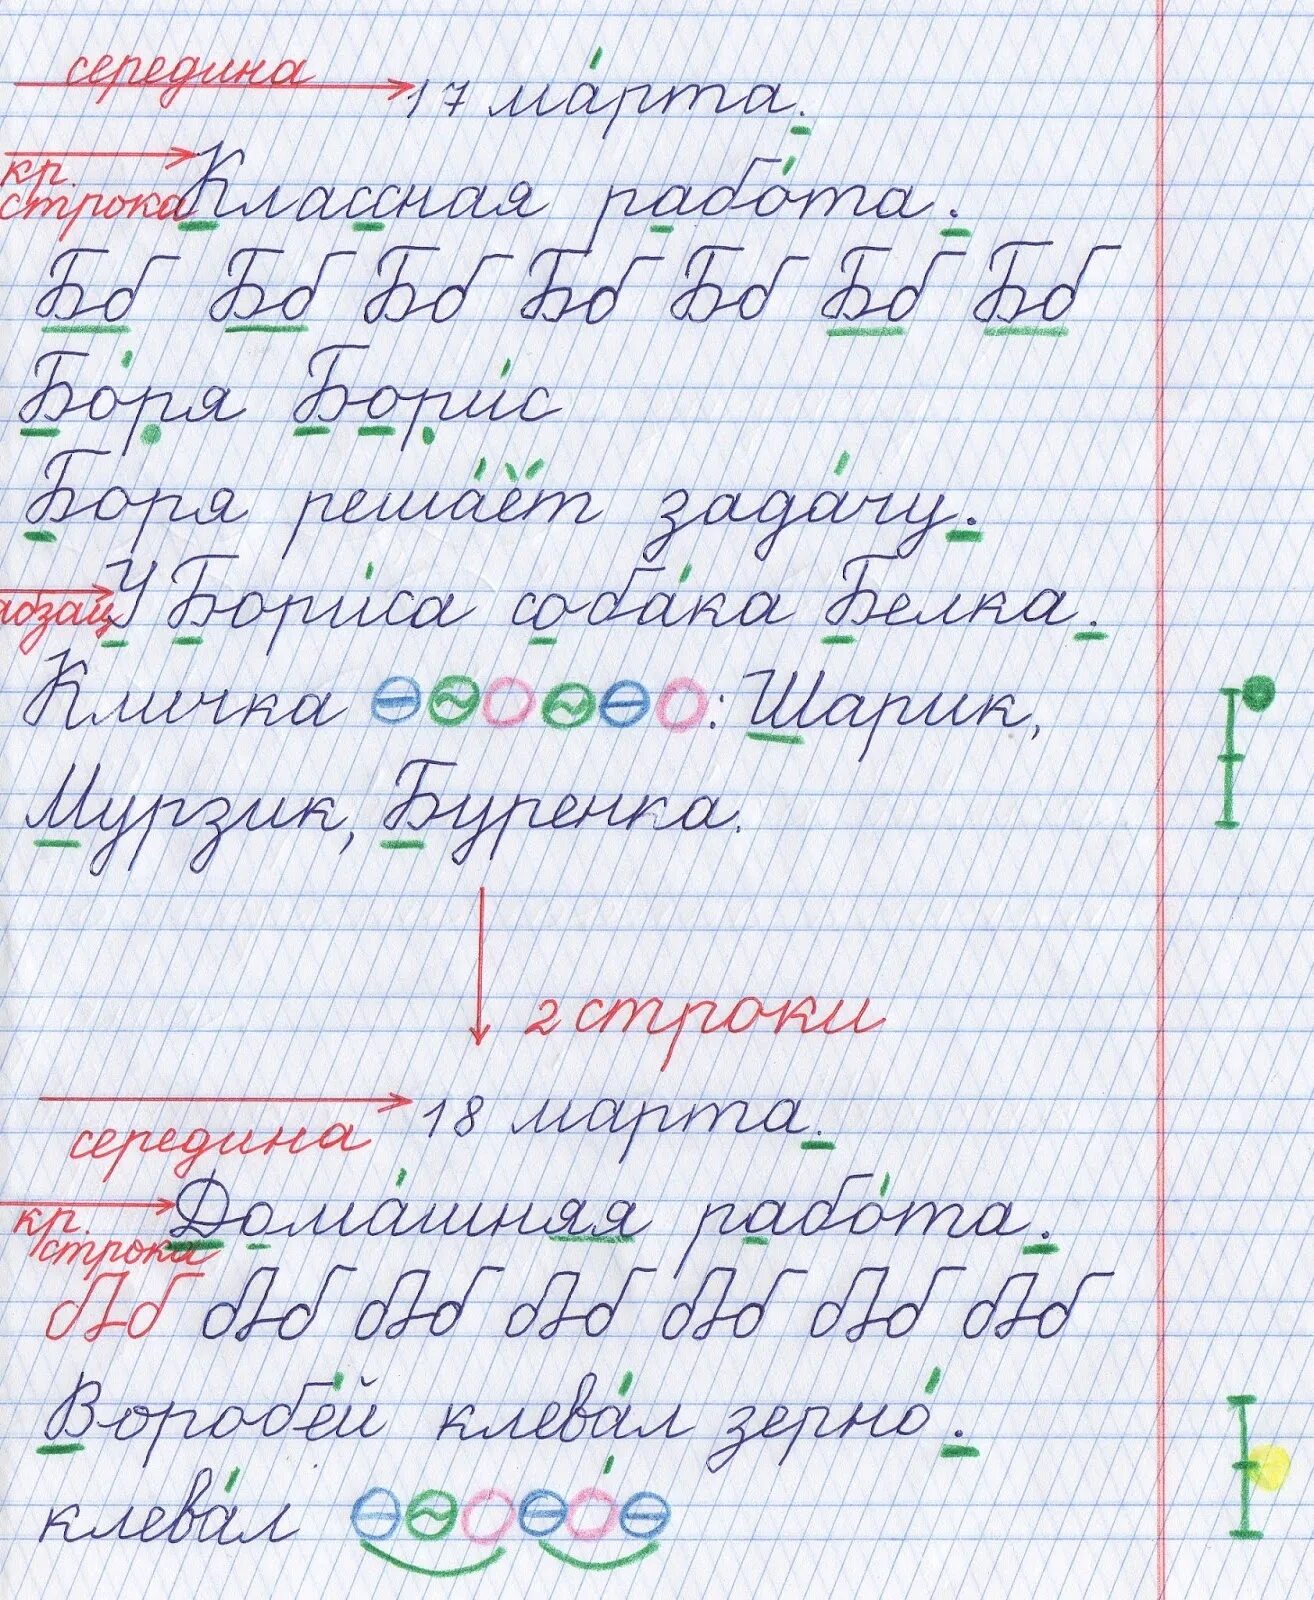 середина 17 ма́рта.
кр. строка Классная рабо́та.
Бб Бб Бб Бб Бб Бб Бб
Бо́ря Бори́с
Боря решает зада́чу.
абзац У Бори́са соба́ка Белка.
Кличка : Шарик,
Мурзик, Буренка.
2 строки
середина 18 марта.
кр. строка Дома́шняя рабо́та.
Лб Лб Лб Лб Лб Лб Лб
Воробе́й клева́л зерно́.
клева́л